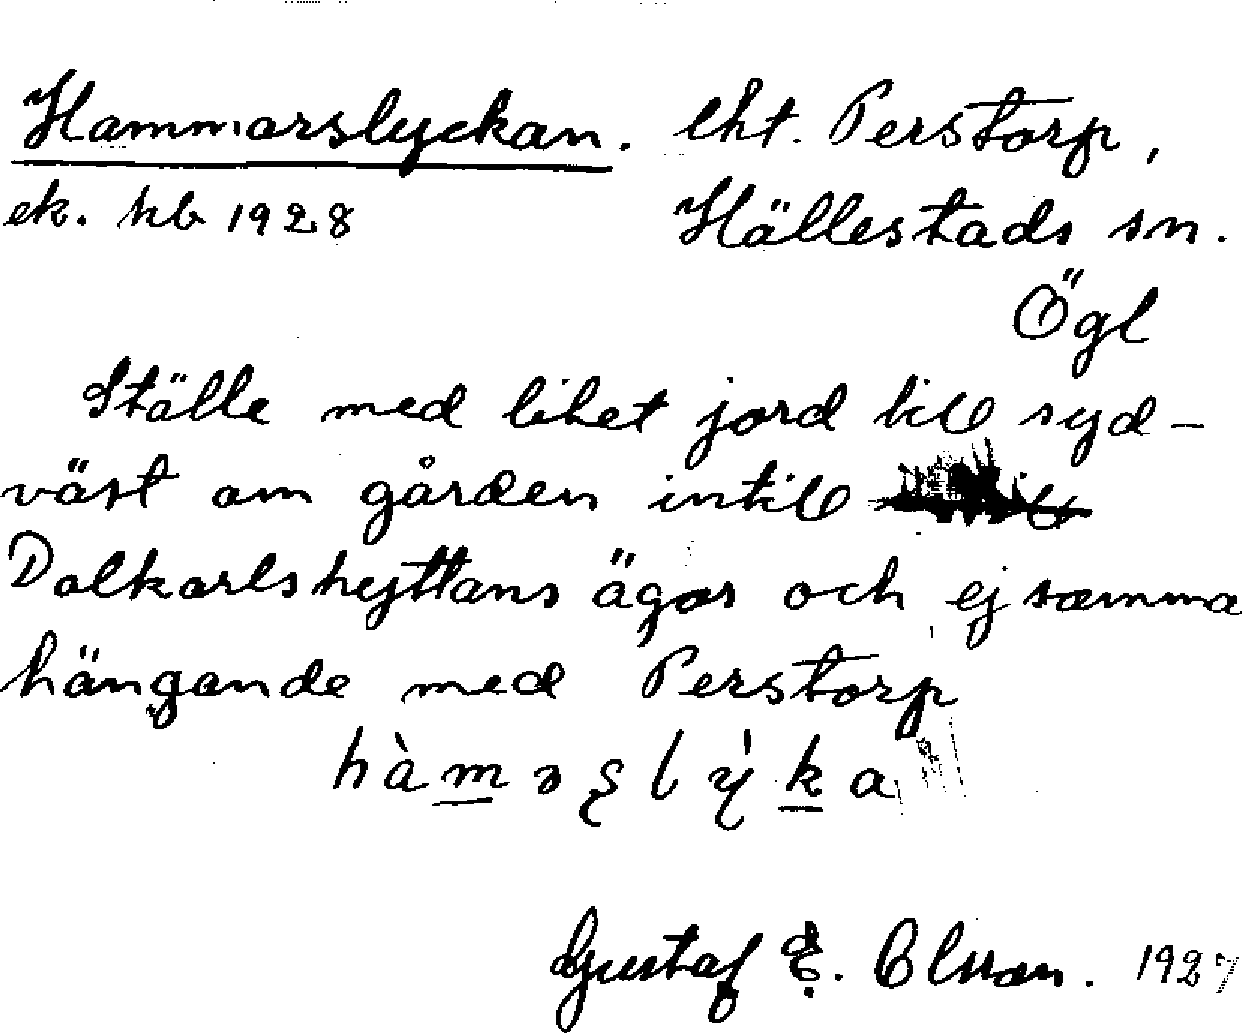 Hammarslyckan. lht. Perstorp,
ek. kb 1928 Hällestads sn.
Ögl
Ställe med litet jord till syd-
väst om gården intill
Dalkarlshyttans ägor och ej samma
hängande med Perstorp
hàməʂlỳka
Gustaf E. Olsson. 1927